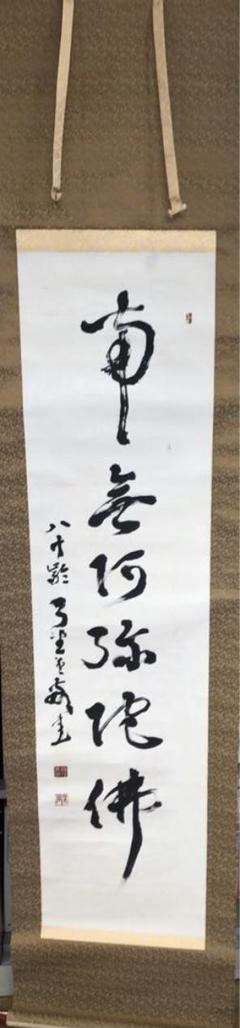 南無阿弥陀佛
八十齢